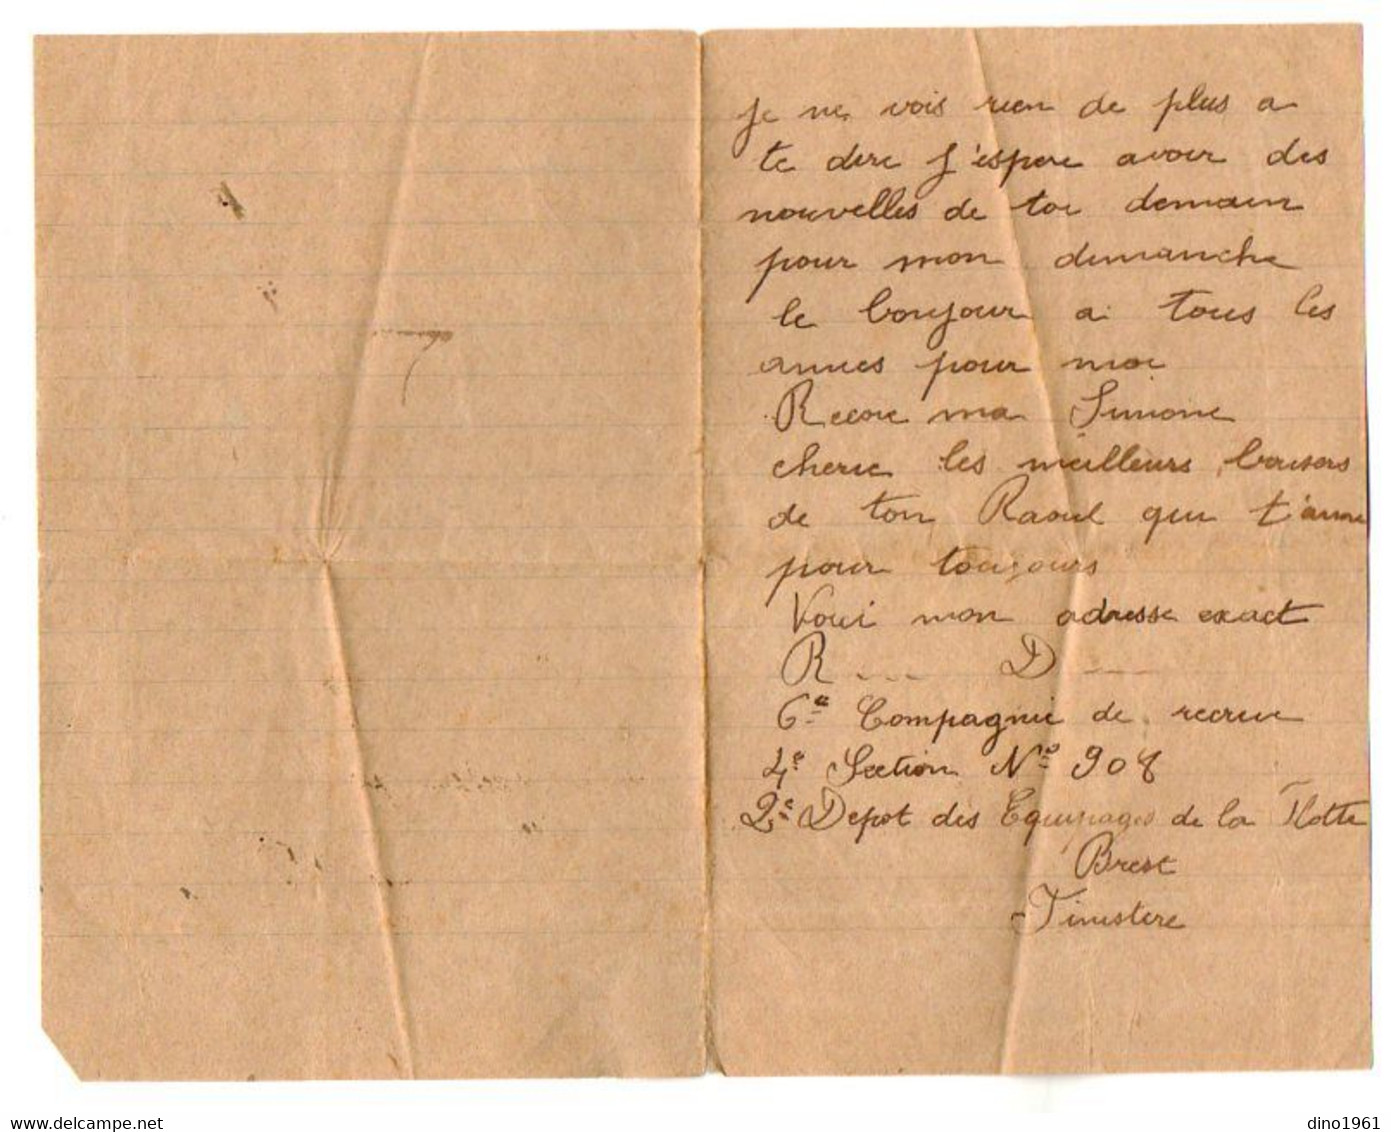 je ne vois rien de plus a
te dire j'espere avoir des
nouvelles de toi demain
pour mon dimanche
le bonjour a tous les
amies pour moi
Recois ma Simone
cherie les meilleurs baisers
de ton Raoul qui t'aime
pour toujours
Voici mon adresse exact
R ... D ...
6e Compagnie de recrue
4e Section No 908
2e Depot des Equipages de la Flotte
Brest
Finistere
www.delcampe.net
dino1961